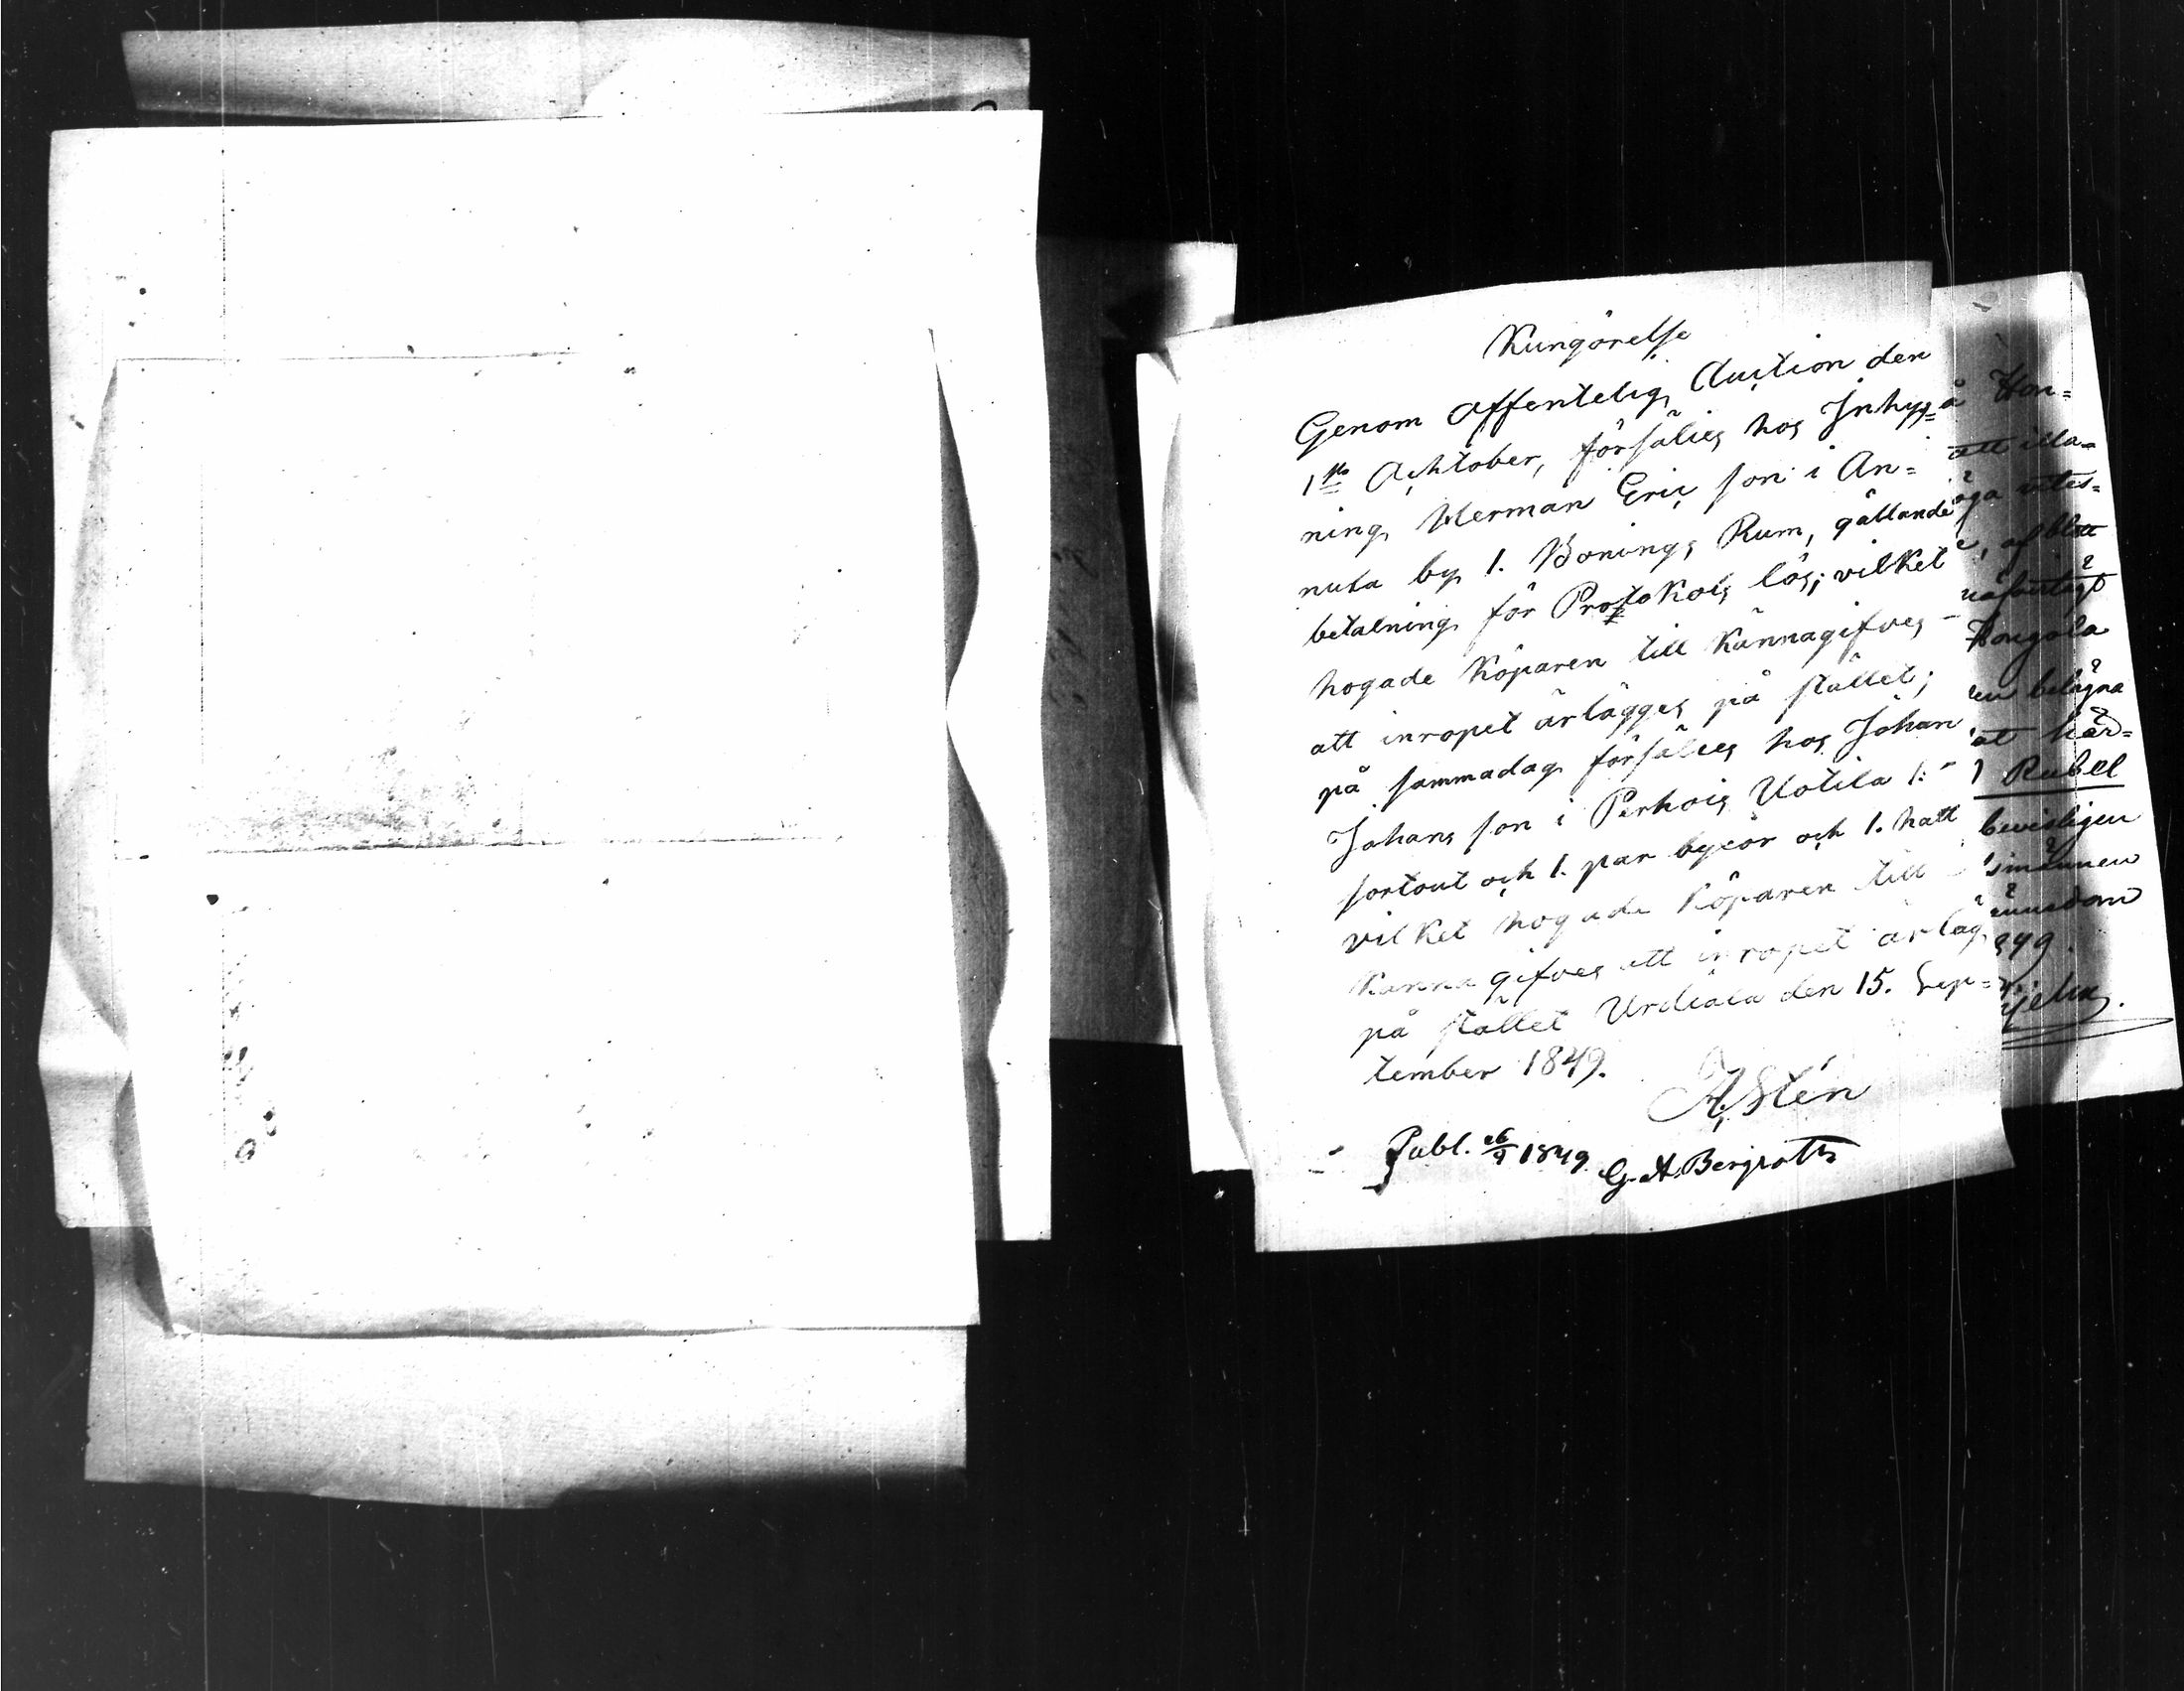 Kungörelse
Genom offentelig Auction den
1sta Achtober, försälies hos Inhys=
ning Herman Eric son i An=
nula by 1. Bonings Rum, gällande
betalning för Protokols lös; vilket
hogade Köparen till Kännagifves
att inropet ärlägges på stället;
på sammadag försälies hos Johan
Johans son i Perhois Uotila 1:
sortout och 1. par bycsor och 1. hatt
vilket hogade Köparen till
Känna gifves att inropet ärläg
på stället Urdiala den 15. Sep=
tember 1849.
A. Stén
Publ. 16/9 1849 G. A. Bergroth
å Hon=
att illa=
äga
, af blott
Hongola
belägna
at här=
1 Rubel
bevisligen